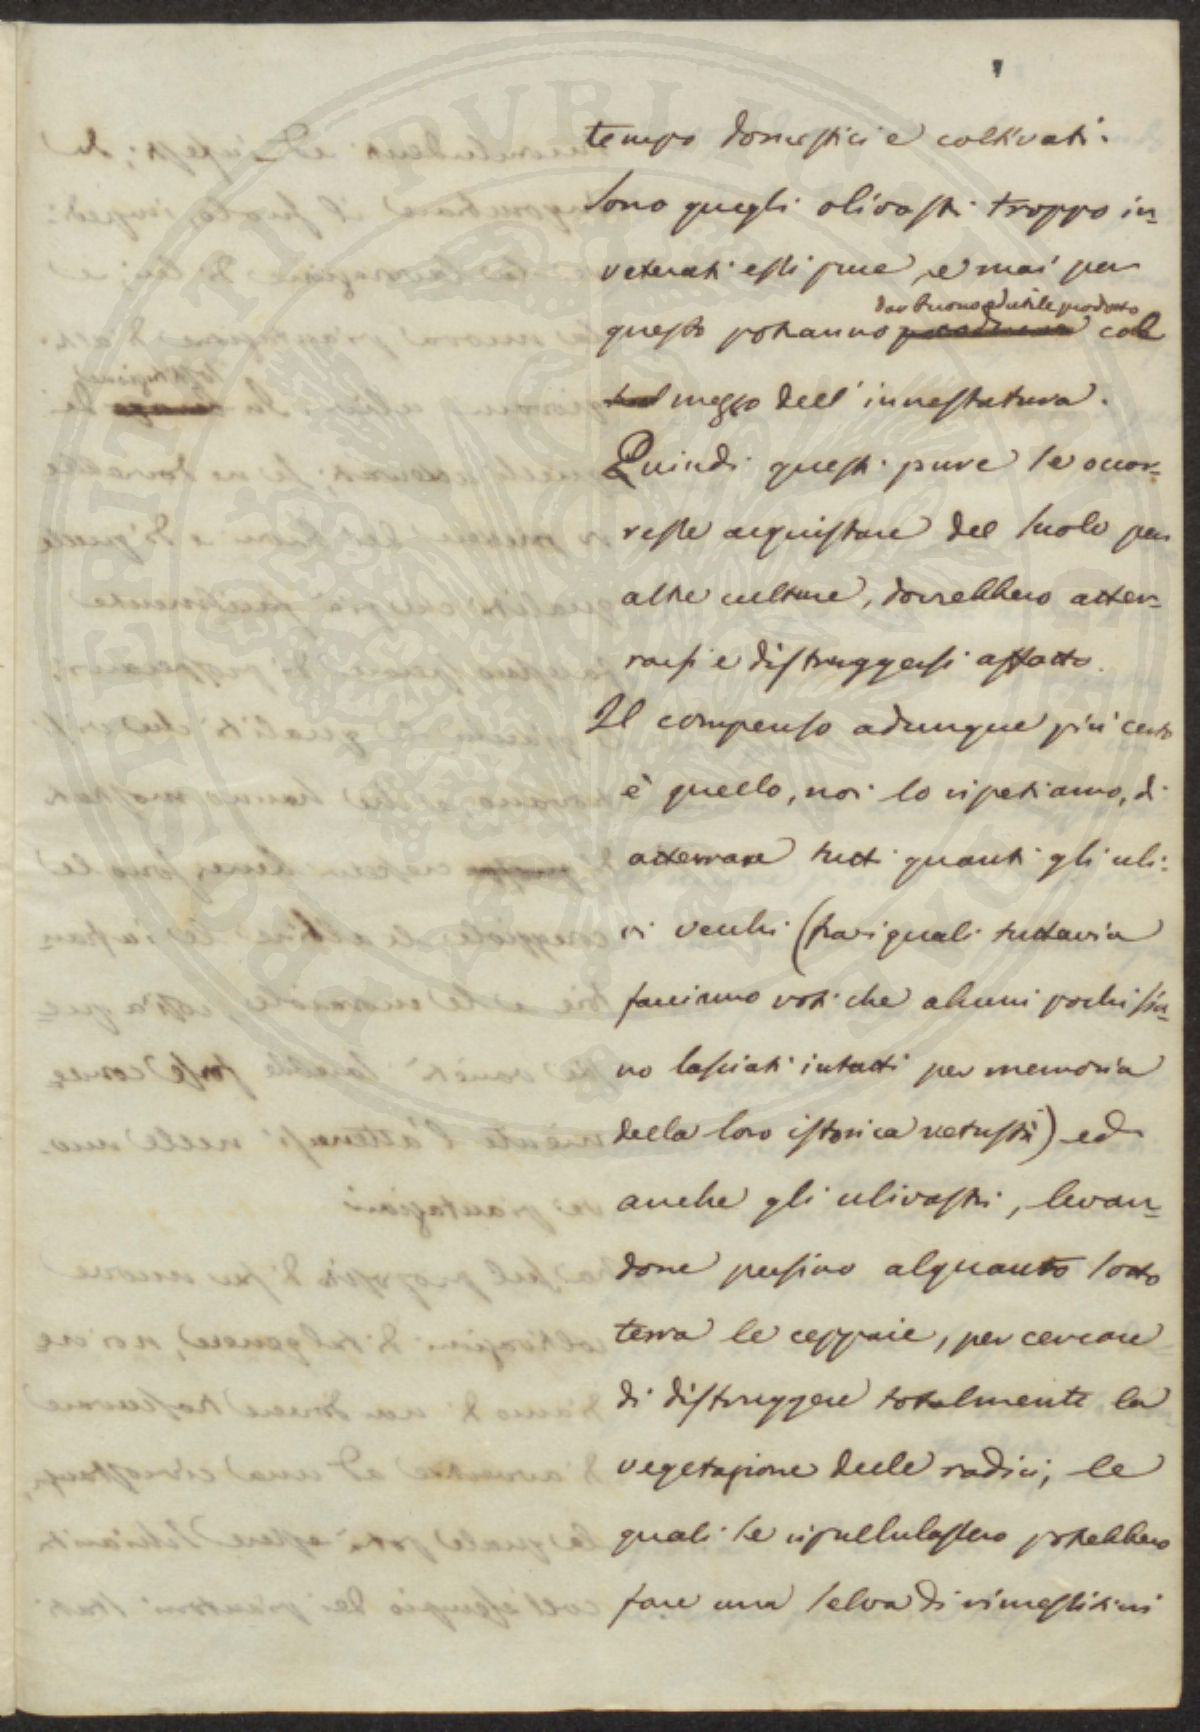 tempo domestici e coltivati.
Sono quegli olivastri troppo in-
veterati essi pure, e mai per
dar buono ed utile prodotto
questo potranno col
mezzo dell'innestatura.
Quindi questi pure se occor-
resse acquistare del suolo per
altre culture, dovrebbero atter-
rarsi e distruggersi affatto.
Il compenso adunque più certo
è quello, noi lo ripetiamo, di
atterrare tutti quanti gli uli-
vi vecchi (fra i quali tuttavia
facciamo voti che alcuni pochi sia-
no lasciati intatti per memoria
della loro istorica vetustà) ed
anche gli ulivastri, levan-
done persino alquanto sotto
terra le ceppaie, per cercare
di distruggere totalmente la
vegetazione delle radici, le
quali se ripullulassero potrebbero
fare una selva di rimessiticci